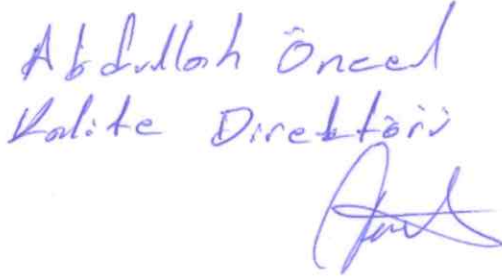 Abdullah Öncel
Kalite Direktörü